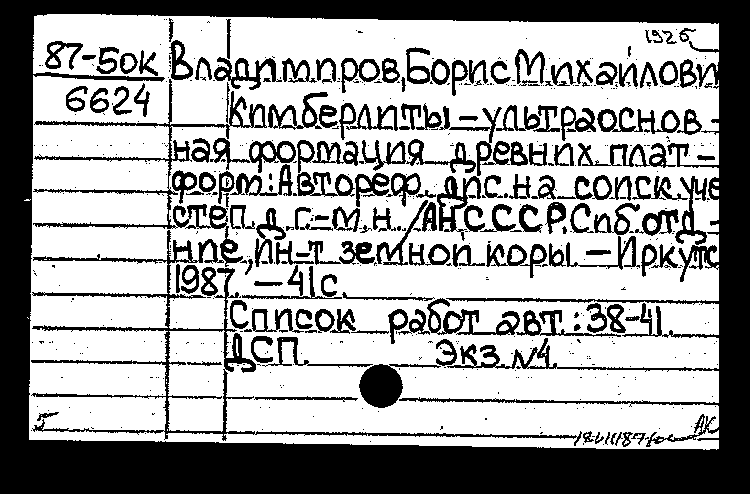 1926
87-5ок Владимиров, Борис Михайлови
6624
Кимберлиты – ультраоснов-
ная формация древних плат-
форм: Автореф. дис. на соиск. уче
степ. д. г.-м. н. / АН СССР, Сиб. отд-
ние, Ин-т земной коры. – Иркутс
1987. – 41 с.
Список работ авт.: 38-41.
ДСП. Экз. N4.
5 АК